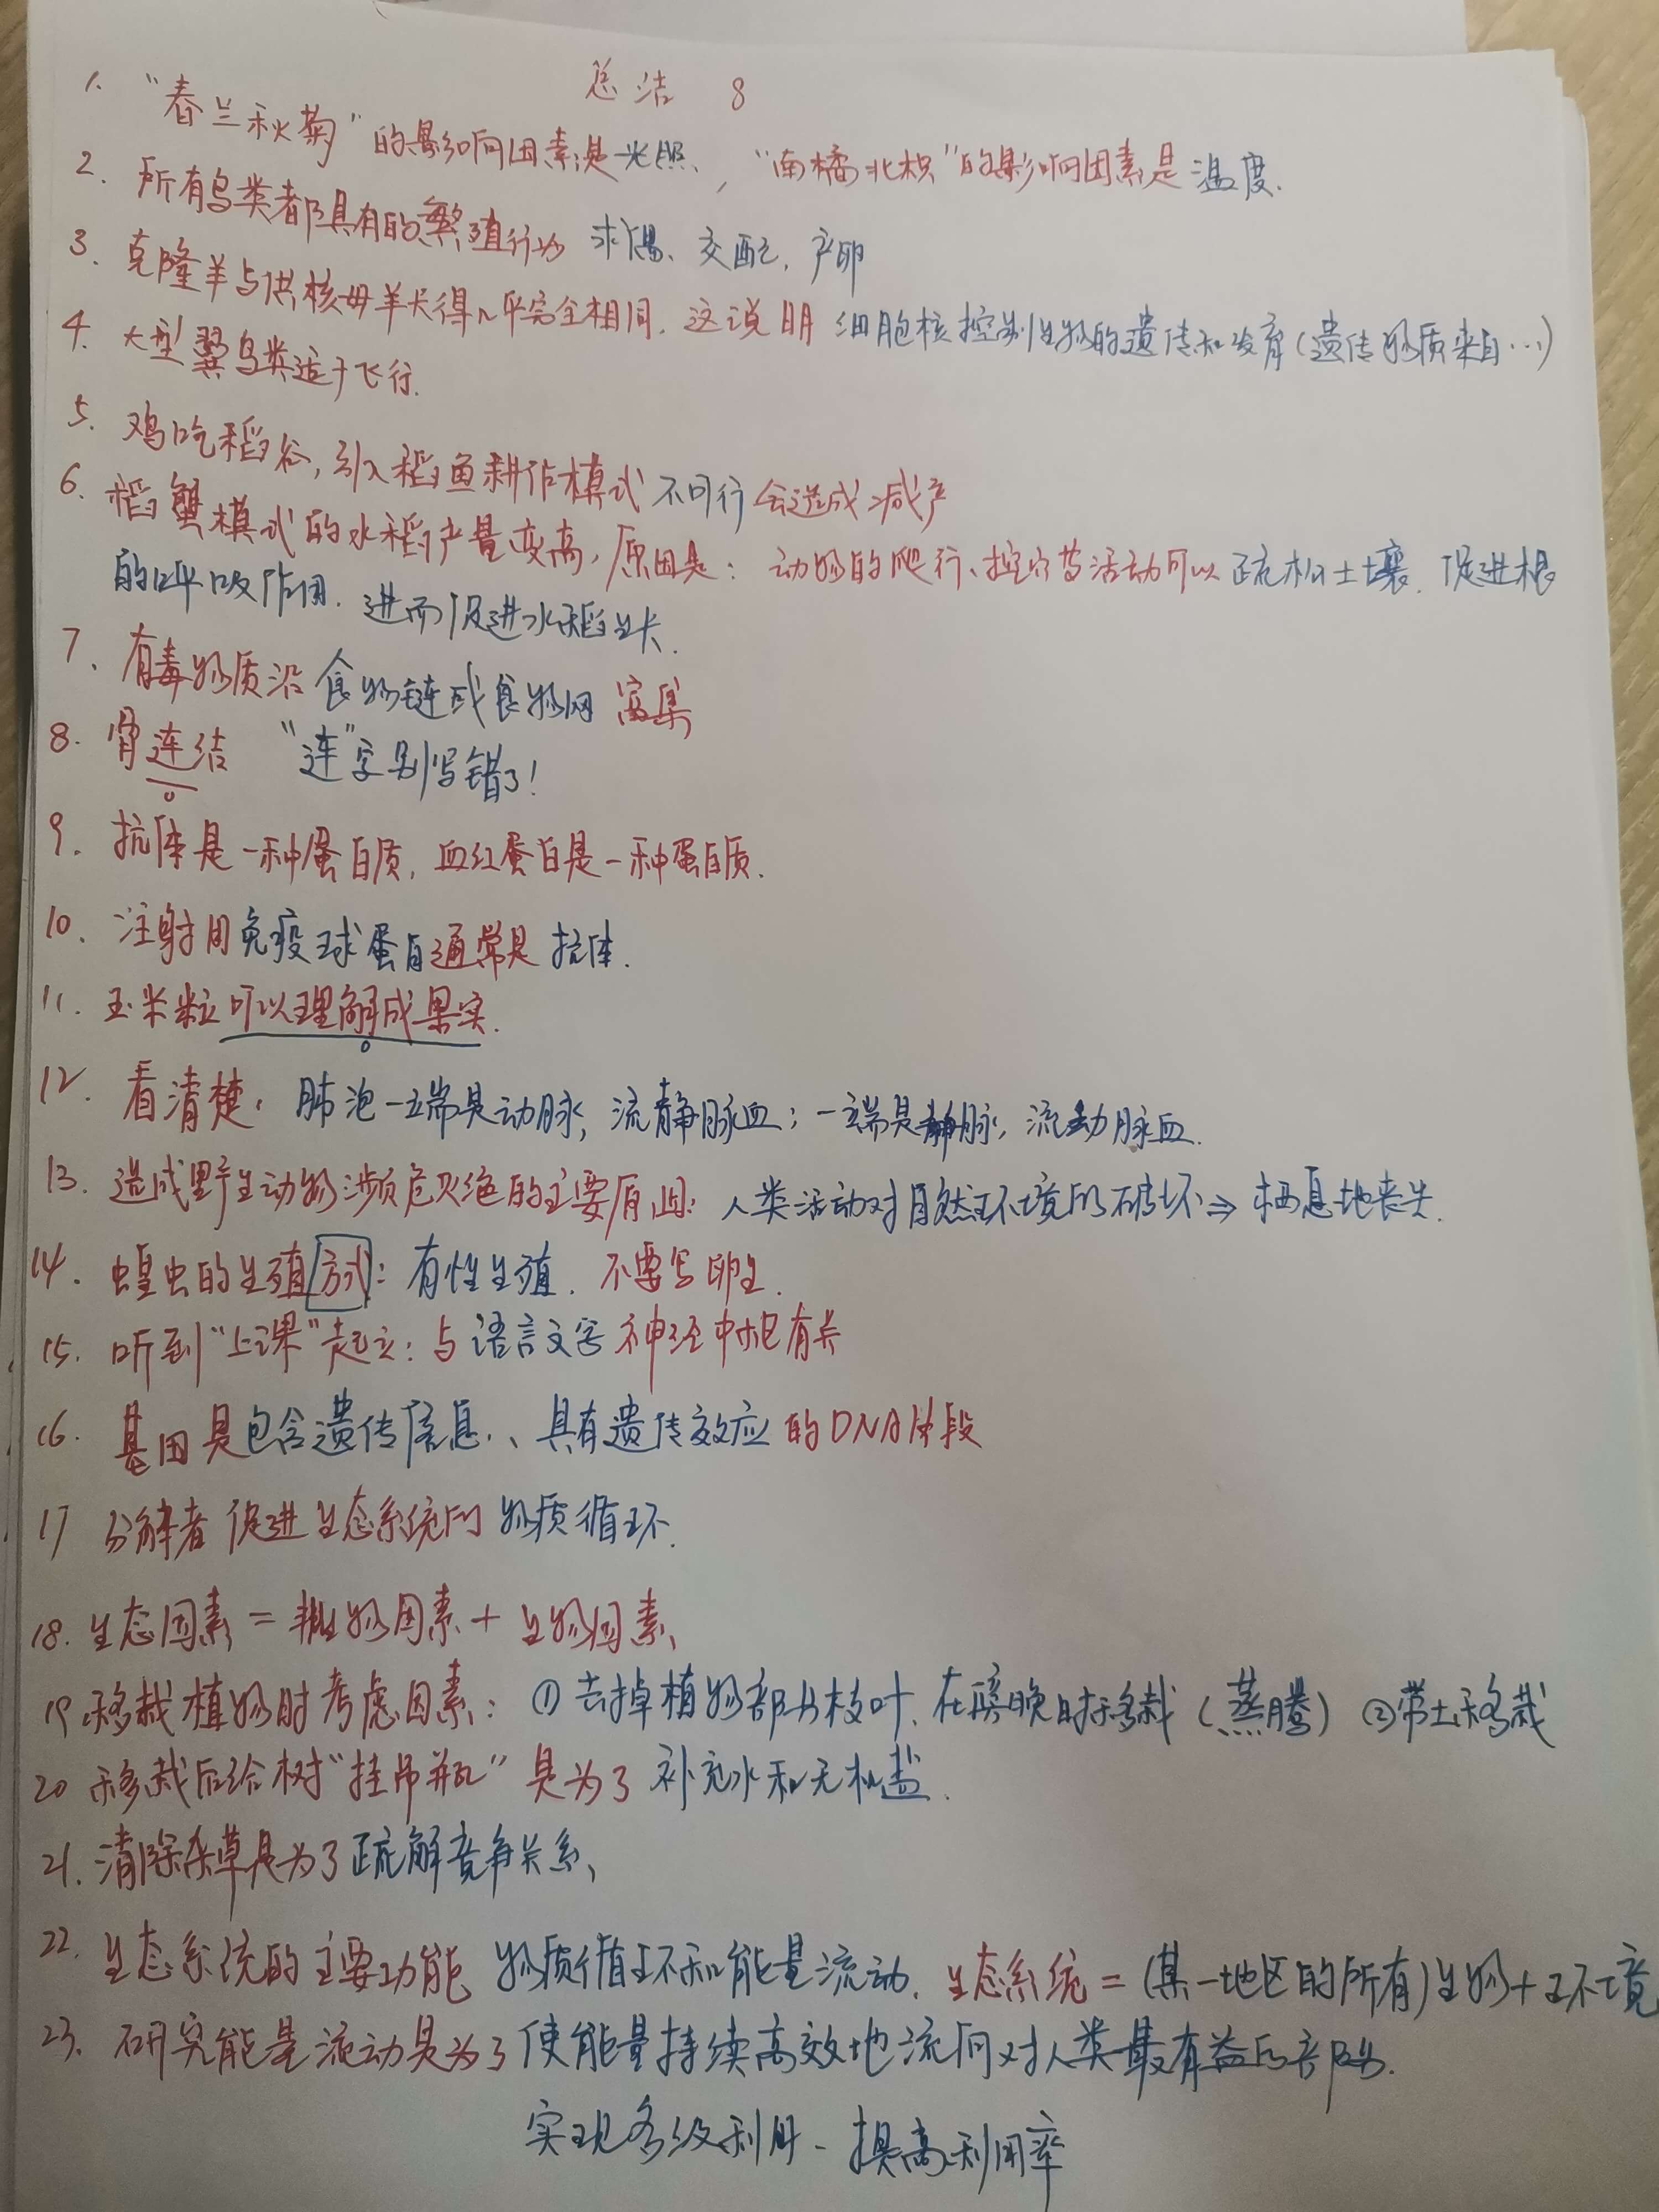 总结 8
1. “春兰秋菊”的影响因素是光照,“南橘北枳”的影响因素是温度.
2. 所有鸟类都具有的繁殖行为 求偶、交配、产卵
3. 克隆羊与供核母羊长得几乎完全相同. 这说明 细胞核控制生物的遗传和发育(遗传物质来自…)
4. 大型翼鸟类适于飞行.
5. 鸡吃稻谷,引入稻鱼耕作模式 不可行 会造成减产
6. 稻蟹模式的水稻产量变高,原因是: 动物的爬行、挖穴等活动可以疏松土壤. 促进根
的呼吸作用. 进而促进水稻生长.
7. 有毒物质沿 食物链或食物网 富集
8. 骨连结 “连”字别写错了!
9. 抗体是一种蛋白质, 血红蛋白是一种蛋白质.
10. 注射用免疫球蛋白通常是 抗体.
11. 玉米粒可以理解成果实.
12. 看清楚, 肺泡一端是动脉, 流静脉血; 一端是静脉, 流动脉血.
13. 造成野生动物濒危灭绝的主要原因: 人类活动对自然环境的破坏⇒栖息地丧失.
14. 蝗虫的生殖方式: 有性生殖. 不要写卵生.
15. 听到“上课”起立: 与语言文字 神经中枢有关
16. 基因是包含遗传信息、具有遗传效应的DNA片段
17 分解者 促进生态系统的 物质循环.
18. 生态因素 = 非生物因素 + 生物因素
19 移栽植物时考虑因素: ①去掉植物部分枝叶、在傍晚时移栽(蒸腾) ②带土移栽
20 移栽后给树“挂吊瓶” 是为了 补充水和无机盐.
21. 清除杂草是为了疏解竞争关系、
22. 生态系统的主要功能 物质循环和能量流动. 生态系统 = (某一地区的所有)生物 + 环境
23. 研究能量流动是为了使能量持续高效地流向对人类最有益的部分.
实现多级利用、提高利用率